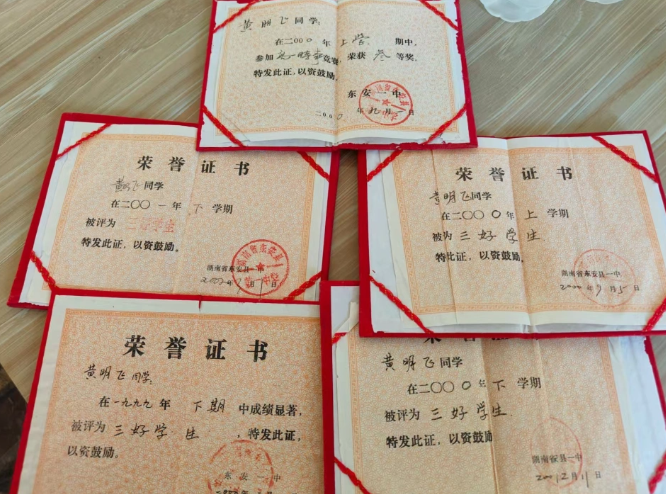 黄明飞同学:
在二000年上学期中,
参加
竞赛荣获叁等奖。
特发此证,以资鼓励。
东安一中
荣誉证书
黄明飞同学
在二〇〇一年下学期
被评为三好学生
特发此证,以资鼓励。
湖南省东安县一中
荣誉证书
黄明飞同学
在二〇〇0年上学期
被为三好学生
特此证,以资鼓励。
湖南省东安县一中
荣誉证书
黄明飞同学
在一九九九年下期中成绩显著,
被评为三好学生,特发此证,
以资鼓励。
东安一中
黄明飞同学
在二〇〇0年下学期
被评为三好学生
特发此证,以资鼓励
湖南省安县一中